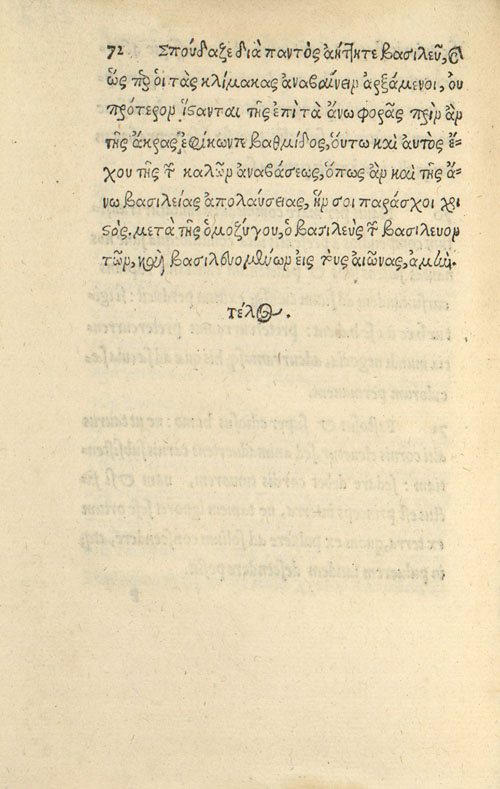 72 Σπούδαζε διὰ παντὸς ἀήττητε βασιλεῦ, καὶ
ὥσπερ οἱ τὰς κλίμακας ἀναβαίνειν ἀρξάμενοι, οὐ
πρότερον ἵστανται τῆς ἐπὶ τὰ ἄνω φορᾶς πρὶν ἂν
τῆς ἄκρας ἐφίκωνται βαθμίδος, οὕτω καὶ αὐτὸς ἔ-
χου τῆς τῶν καλῶν ἀναβάσεως, ὅπως ἂν καὶ τῆς ἄ-
νω βασιλείας ἀπολαύσειας, ἥν σοι παράσχοι χρι
στός. μετὰ τῆς ὁμοζύγου, ὁ βασιλεὺς τῶν βασιλευον
τῶν, καὶ βασιλευομένων εἰς τοὺς αἰῶνας, ἀμήν.
τέλος.